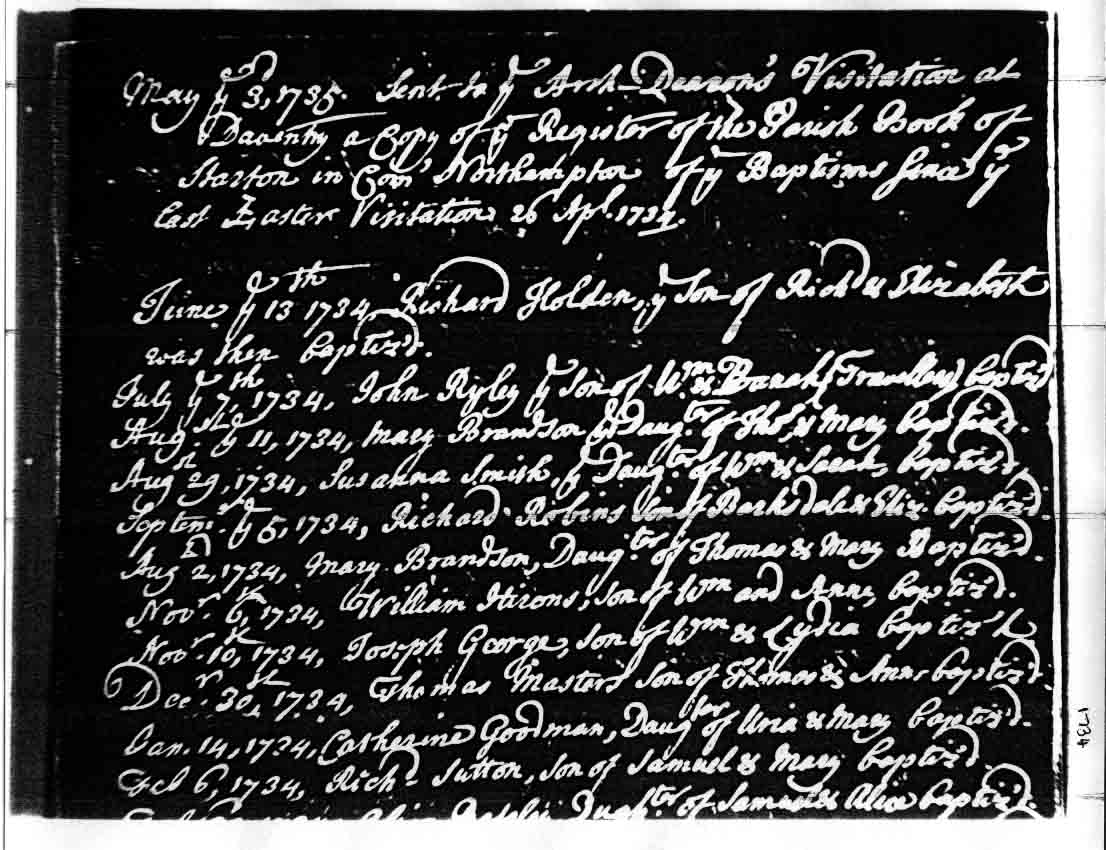 May ye 3d, 1735. Sent to ye Arch-Deacon's Visitation at
Daventry a Copy of ye Register of the Parish Book of
Harton in Com Northampton of ye Baptisms since ye
last Easter Visitation 26 Apl. 1734.
June ye 13th 1734, Richard Holden, ye Son of Richd & Elizabeth
was then baptiz'd.
July ye 7th, 1734, John Ryley ye Son of Wm & (Travellers) baptiz'd
Aug. ye 11, 1734, Mary Brandson Daugter of Thos & Mary baptiz'd.
Aug 29, 1734, Susanna Smith, ye Daugter of Wm & Sarah, baptiz'd,
Septemr ye 5, 1734, Richard Robins Son of Barksdale & Eliz. baptiz'd
Aug 2d, 1734, Mary Brandson, Daugter of Thomas & Mary Baptiz'd.
Novr 6th, 1734, William Hirons, Son of Wm and Anne, baptiz'd.
Novr 10th, 1734, Joseph George, Son of Wm & Lydia baptiz'd
Decr 30, 1734, Thomas Masters Son of Thomas & Anne baptiz'd.
Jan. 14, 1734, Catherine Goodman, Daugter of Uria & Mary baptiz'd.
Feb 6, 1734, Richd Sutton, Son of Samuel & Mary baptiz'd.
Daughter of Samuel & Alice baptiz'd.
1734